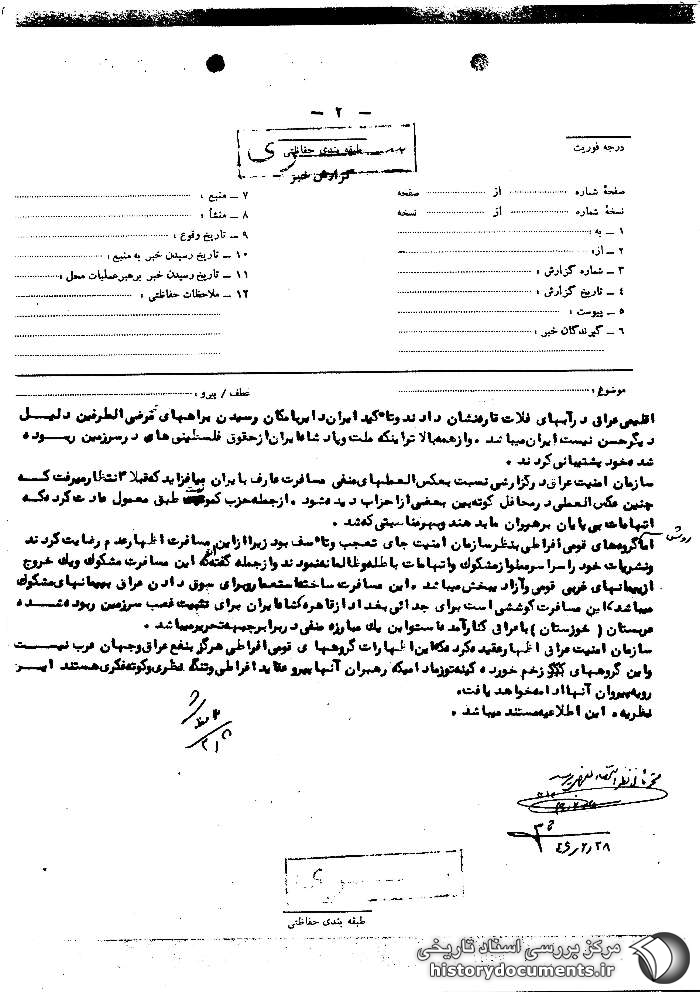 ـ ۲ ـ
درجه فوریت
طبقه بندی حفاظتی
گزارش خبر
صفحهٔ شماره از صفحه
نسخهٔ شماره از نسخه
۱ ـ به :
۲ ـ از :
۳ ـ شماره گزارش :
۴ ـ تاریخ گزارش :
۵ ـ پیوست :
۶ ـ گیرندگان خبر :
۷ ـ منبع :
۸ ـ منشأ :
۹ ـ تاریخ وقوع :
۱۰ ـ تاریخ رسیدن خبر به منبع :
۱۱ ـ تاریخ رسیدن خبر برهبر عملیات محل :
۱۲ ـ ملاحظات حفاظتی :
موضوع : عطف / پیرو :
اقلیمی عراق در آبهای فلات قاره نشان دادند و تأکید ایران دایر بامکان رسیدن براههای مرضی الطرفین دلیل
دیگر حسن نیست ایران میباشد . و از همه بالاتر اینکه ملت و پادشاه ایران از حقوق فلسطینی های در سرزمین ربوده
شده خود پشتیبانی کردند .
سازمان امنیت عراق در گزارشی نسبت بعکس العملهای منفی مسافرت عارف بایران میافزاید که قبلا انتظار میرفت که
چنین عکس العملی در محافل کوته بین بعضی از احزاب دیده شود . از جمله حزب طبق معمول عادت کرده که
اتهامات بی پایان برهبران ما بدهند و بهر مناسبتی که شد .
روشن
اما گروههای قومی افراطی بنظر سازمان امنیت جای تعجب و تأسف بود زیرا از این مسافرت اظهار عدم رضایت کردند
و نشریات خود را سراسر مملو از مشکوک و اتهامات باطله و ظالمانه نمودند و از جمله گفته اند که این مسافرت مشکوک و یک خروج
از پیمانهای عربی قومی و آزاد یبخش میباشد . این مسافرت ساخته استعمار و برای سوق دادن عراق بپیمانهای مشکوک
میباشد ، این مسافرت کوششی است برای جدائی بغداد از قاهره که شاه ایران برای تثبیت غصب سرزمین ربوده شده
عربستان ( خوزستان ) با عراق کنار آمده است و این یک مبارزه منفی در برابر جبهه تحریر میباشد .
سازمان امنیت عراق اظهار عقیده کرده که این اظهارات گروههای قومی افراطی هرگز بنفع عراق و جهان عرب نیست
و این گروههای زخم خورده کینه توز مادامیکه رهبران آنها پیرو عقاید افراطی و تنگ نظری و کوته فکری هستند این
رویه پیروان آنها ادامه خواهد یافت .
نظریه . این اطلاعیه مستند میباشد .
۴۶/۲/۲۸
طبقه بندی حفاظتی
مرکز بررسی اسناد تاریخی
historydocuments.ir